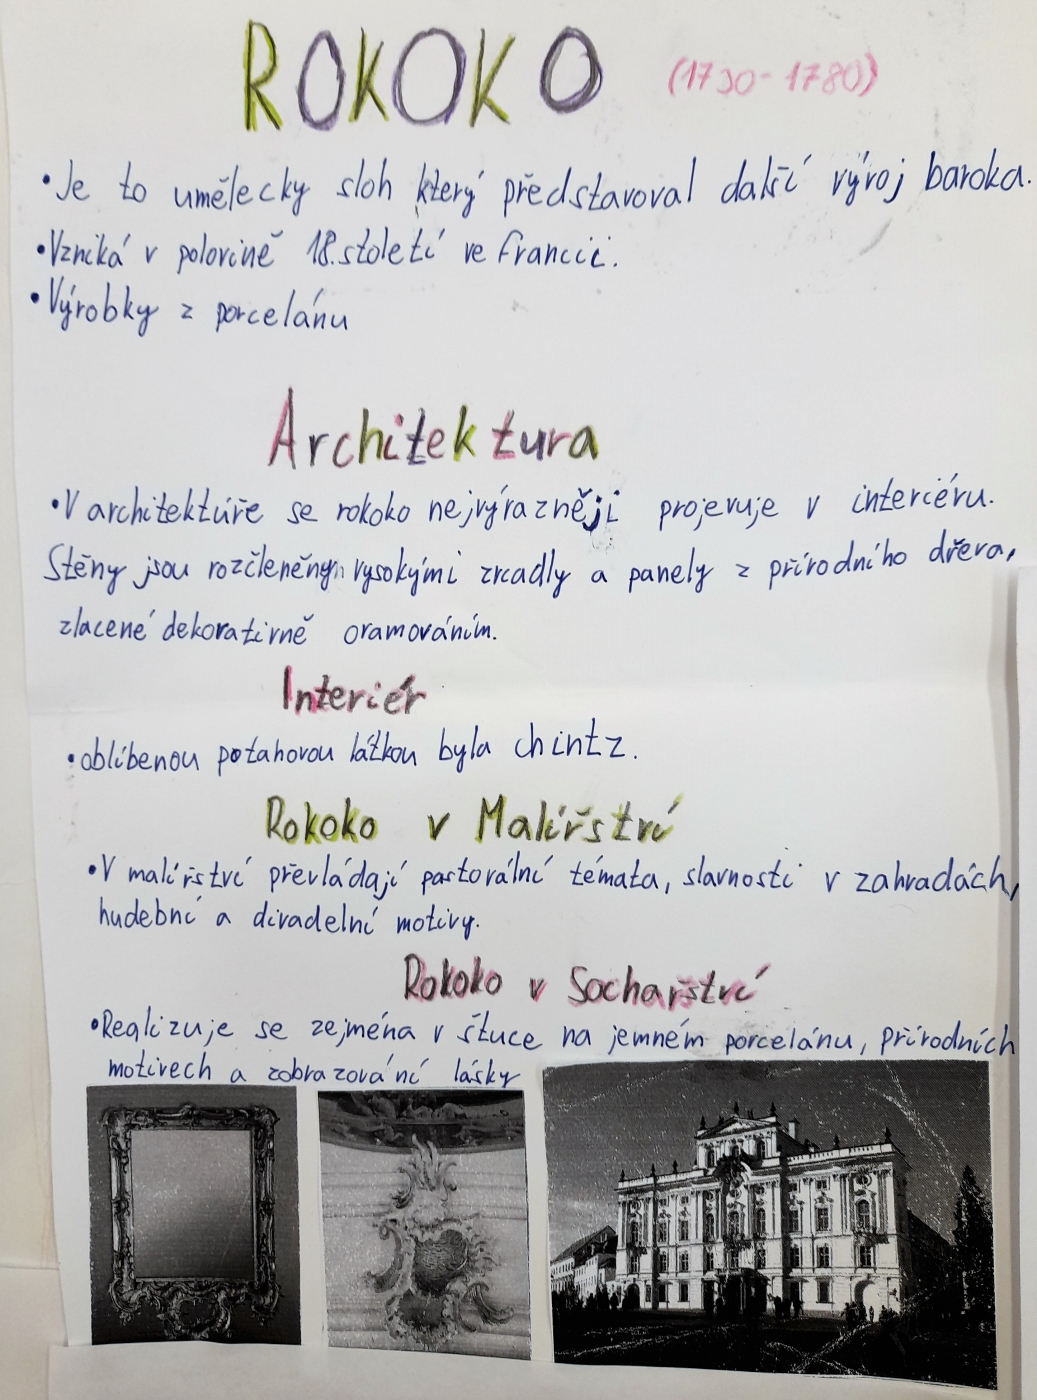 ROKOKO (1730-1780)
• Je to umělecky sloh který představoval další vývoj baroka.
• Vzniká v polovině 18.století ve Francii.
• Výrobky z porcelánu
Architektura
• V architektúře se rokoko nejvýrazněji projevuje v interiéru.
Stěny jsou rozčleněny vysokými zrcadly a panely z přírodního dřeva,
zlacené dekorativně oramováním.
Interiér
• oblíbenou potahovou látkou byla chintz.
Rokoko v Malířství
• V malířství převládají pastorální témata, slavnosti v zahradách,
hudební a divadelní motivy.
Rokoko v Sochařství
• Realizuje se zejména v štuce na jemném porcelánu, přírodních
motivech a zobrazování lásky